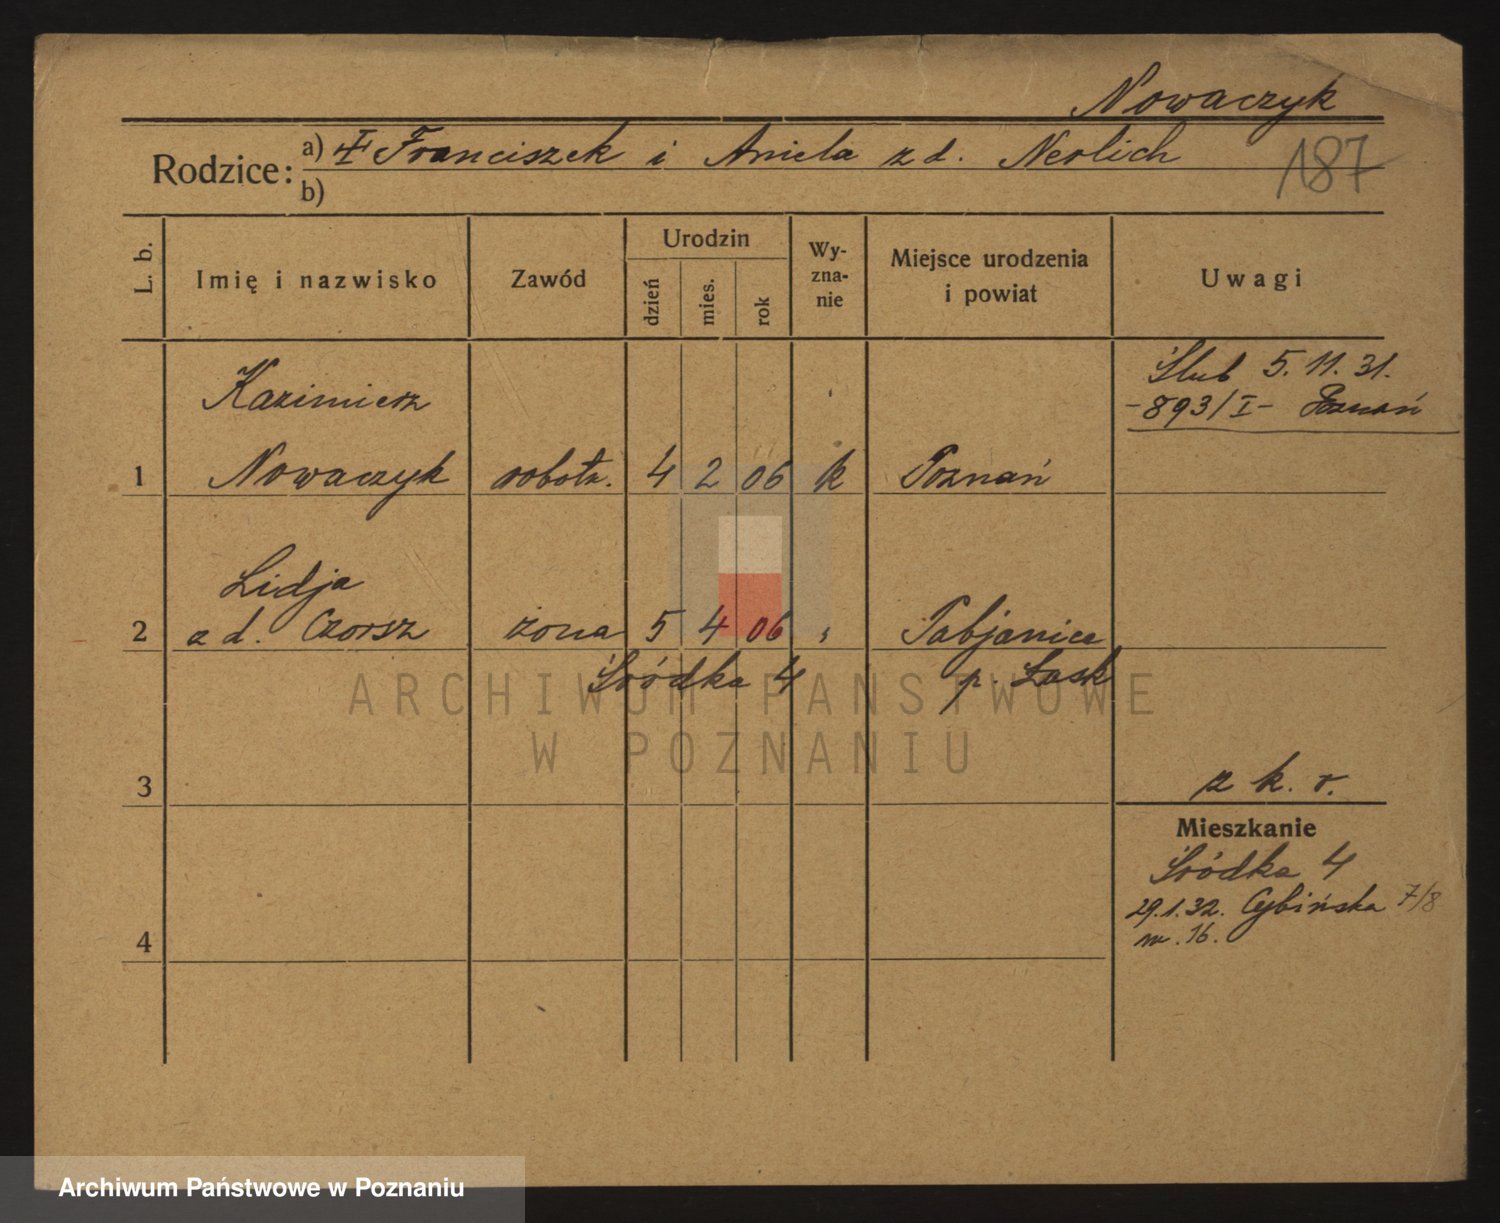 Nowaczyk
Rodzice: a) Franciszek i Aniela z d. Nerlich
187
b)
L. b.
Imię i nazwisko
Zawód
Urodzin
dzień
mies.
rok
Wy-
zna-
nie
Miejsce urodzenia
i powiat
Uwagi
Kazimierz
Ślub 5. 11. 31.
-893/I- Poznań
1 Nowaczyk robotn. 4 2 06 k Poznań
Lidja
2 z d. Czorsz żona 5 4 06 „ Pabjanice
Śródka 4 p. Łask
ARCHIWUM PAŃSTWOWE
W POZNANIU
3
z k. r.
Mieszkanie
Śródka 4
29.1.32. Cybińska 7/8
m. 16.
4
Archiwum Państwowe w Poznaniu